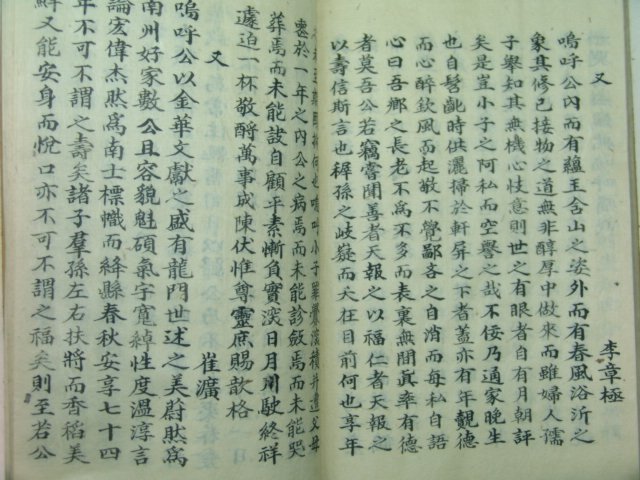 又
李章極
嗚呼公內而有蘊玉含山之姿外而有春風浴沂之
象其修己接物之道無非醇厚中做來而雖婦人孺
子擧知其無機心忮意則世之有眼者自有月朝評
矣是豈小子之阿私而空譽之哉不佞乃通家晚生
也自髫齔時供灑掃於軒屛之下者蓋亦有年覿德
而心醉飮風而起敬不覺鄙吝之自消而每私自語
心曰吾鄕之長老不爲不多而表裏無間眞率有德
者莫吾公若竊嘗聞善者天報之以福仁者天報之
以壽信斯言也稺孫之岐嶷而夭在目前何也享年
葬焉而未能誄自顧平素慚負實深日月川駛終祥
遽迫一杯敬酹萬事成陳伏惟尊靈庶賜歆格
又
崔濂
嗚呼公以金華文獻之盛有龍門世述之美蔚然爲
南州好家數公且容貌魁碩氣宇寬綽性度溫淳言
論宏偉杰然爲南士標幟而絳縣春秋安享七十四
年不可不謂之壽矣諸子羣孫左右扶將而香稻美
鮮又能安身而悅口亦不可不謂之福矣則至若公